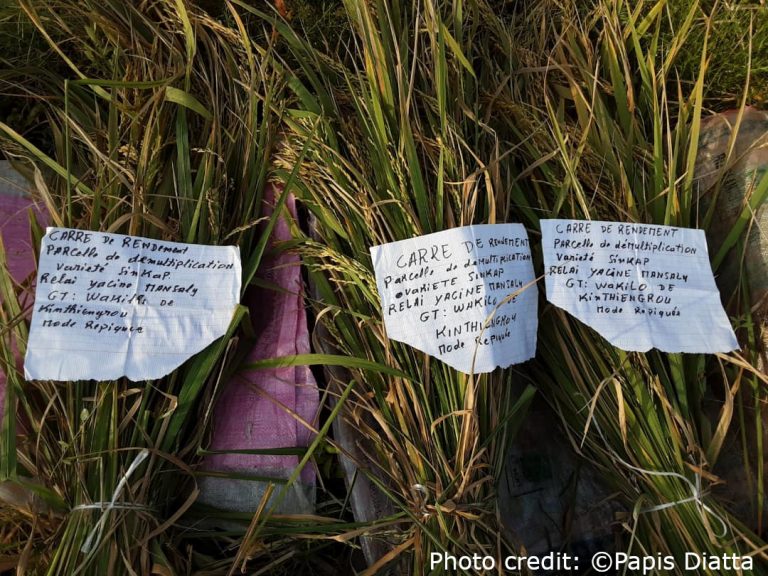 CARRE DE RENDEMENT
PARCELLO DE démultiplication
VARIETÉ SINKAP
RELAI YACINE MANSALY
GT: WAKILO DE
Kinthiengrou
Mode Repiquée
CARRE DE RENDEMENT
PARCELLO DE démultiplication
VARIETE SINKAP
RELAI YACINE MANSALY
GT: WAKILO DE
KINTHIENGROU
Mode Repiquée
CARRE DE RENDEMENT
PARCELLO de démultiplication
VARIETÉ SINKAP
RELAI YACINE MANSALY
GT: WAKILO DE
KINTHIENGROU
Mode Repiqués
Photo credit: ©Papis Diatta